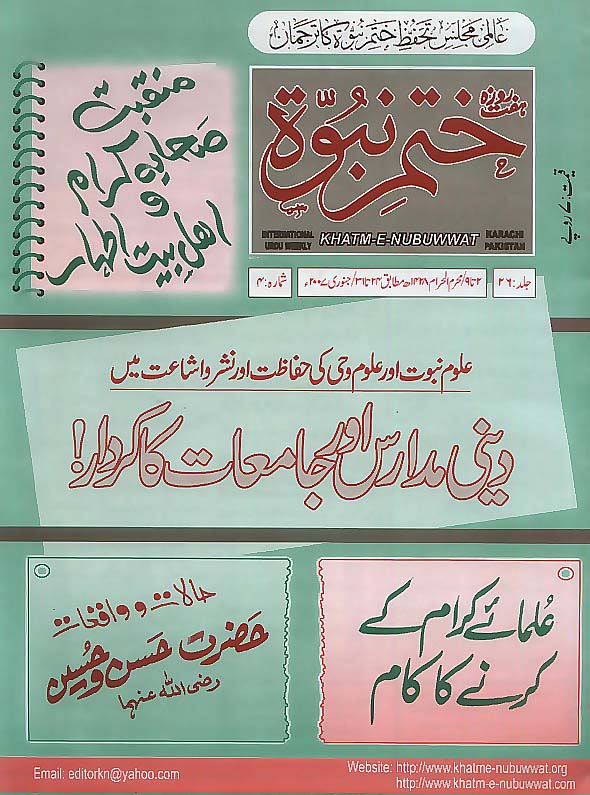 عالمی مجلس تحفظ ختم نبوۃ کا ترجمان
ہفت روزہ
ختم نبوّۃ
INTERNATIONAL
URDU WEEKLY
KHATM-E-NUBUWWAT
KARACHI
PAKISTAN
قیمت: ۷ روپے
منقبت
صحابہ کرام
و
اھل بیت اطہار
جلد: ۲۶
۲ تا ۹/محرم الحرام ۱۴۲۸ھ مطابق ۲۴ تا ۳۱/جنوری ۲۰۰۷ء
شمارہ: ۴
علوم نبوت اور علوم وحی کی حفاظت اور نشر و اشاعت میں
دینی مدارس اور جامعات کا کردار!
عُلمائے کرام کے
کرنے کا کام
حالات و واقعات
حضرت حسن و حسین
رضی اللہ عنہما
Email: editorkn@yahoo.com
Website: http://www.khatme-nubuwwat.org
http://www.khatm-e-nubuwwat.com